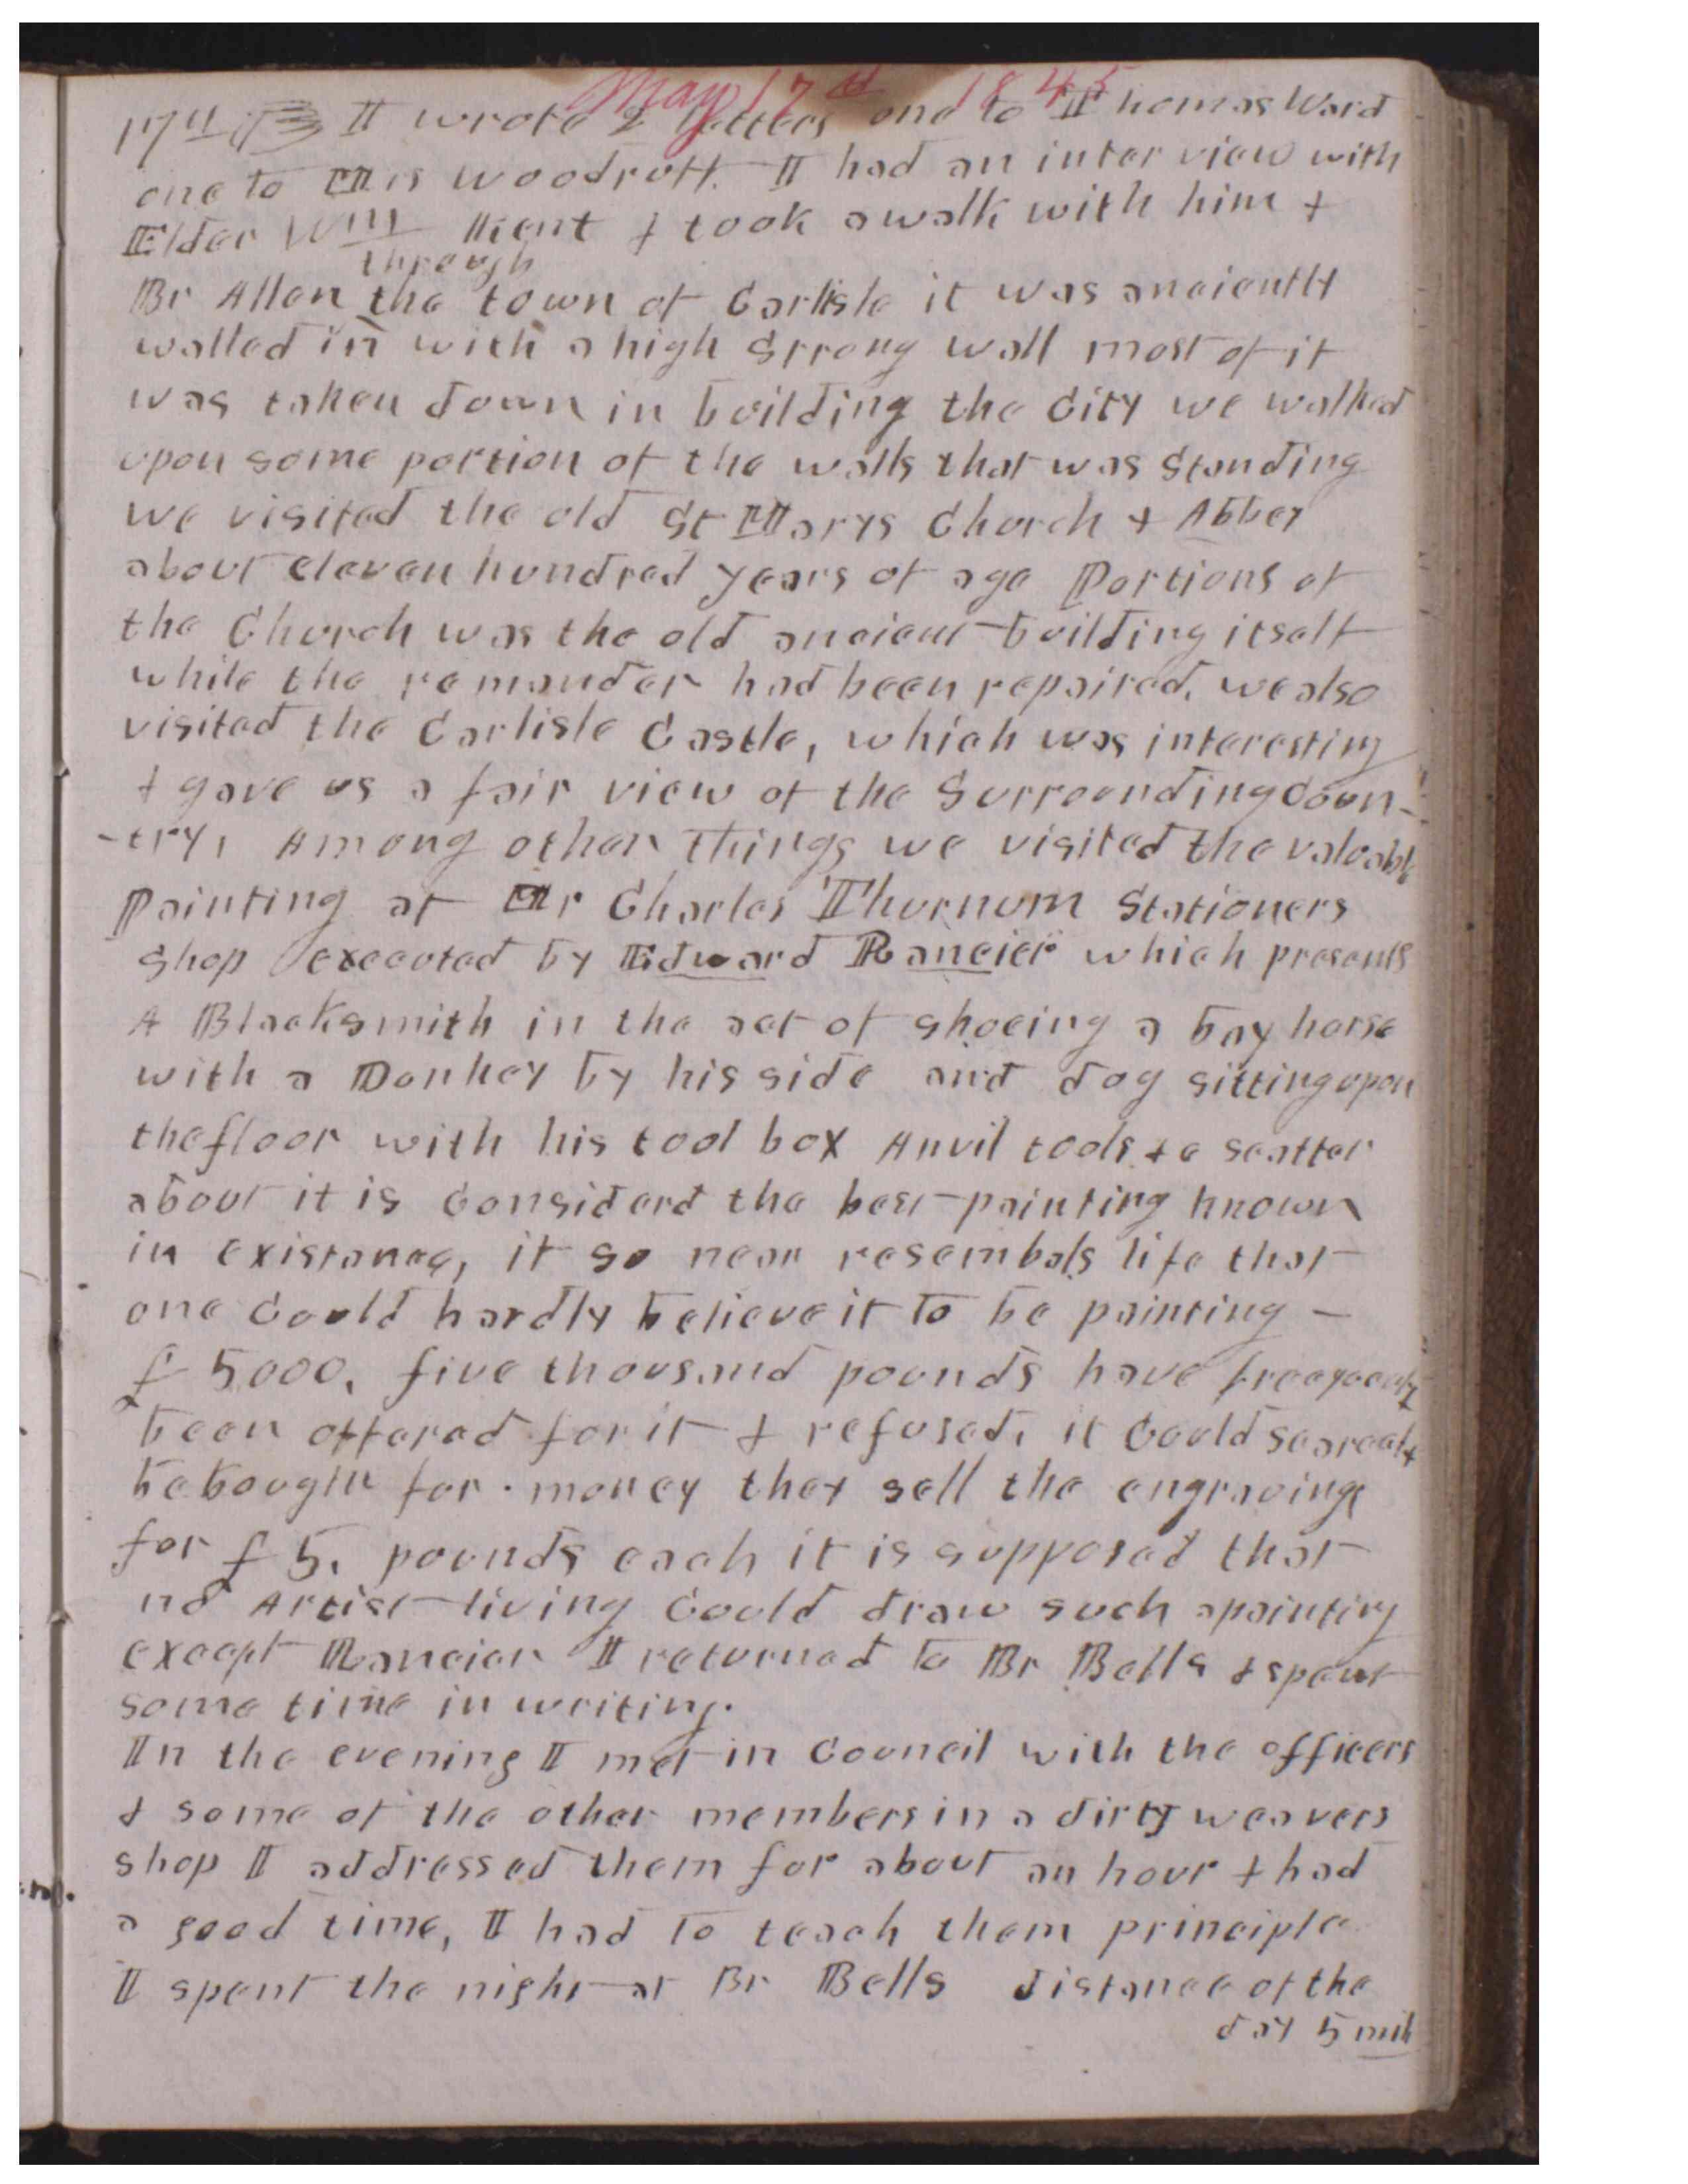 May 17th 1845
17th I wrote 2 letters one to Thomas Ward
one to Mrs Woodruff. I had an interview with
Elder Wm Kent & took a walk with him &
through
Br Allen the town of Carlisle it was anciently
walled in with a high Strong wall most of it
was taken down in building the City we walked
upon some portion of the walls that was Standing
we visited the old St Marys Church & Abbey
about eleven hundred years of age Portions of
the Church was the old ancient building itself
while the remander had been repaired. we also
visited the Carlisle Castle, which was interesting
& gave us a fair view of the Surrounding Coun-
-try, Among other things we visited the valuable
Painting at Mr Charles Thurnum Stationers
Shop executed by Edward Rancier which presents
A Blacksmith in the act of shoeing a bay horse
with a Donkey by his side and dog sitting upon
the floor with his tool box Anvil tools &c scatter
about it is Considerd the best painting known
in existance, it so near resembals life that
one Could hardly believe it to be painting —
£5000. five thousand pounds have freequently
been offered for it & refused, it Could scarcely
be bought for money they sell the engravings
for £5. pounds each it is supposed that
no Artist living Could draw such a painting
except Rancier I returned to Br Bells & spent
some time in writing.
In the evening I met in Council with the officers
& some of the other members in a dirty weavers
shop I addressed them for about an hour & had
a good time, I had to teach them principle
I spent the night at Br Bells distance of the
day 5 mile